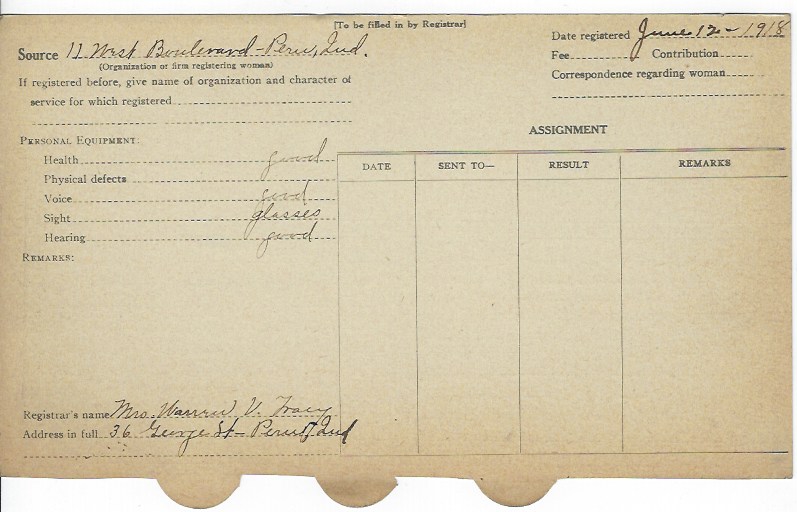 [To be filled in by Registrar]
Source 11 West Boulevard - Peru, Ind.
(Organization or firm registering woman)
If registered before, give name of organization and character of
service for which registered
Date registered June 12 - 1918
Fee Contribution
Correspondence regarding woman
PERSONAL EQUIPMENT:
Health good
Physical defects
Voice good
Sight glasses
Hearing good
REMARKS:
ASSIGNMENT
DATE SENT TO— RESULT REMARKS
Registrar's name Mrs. Warren V. Tracy
Address in full 36 George St - Peru, Ind